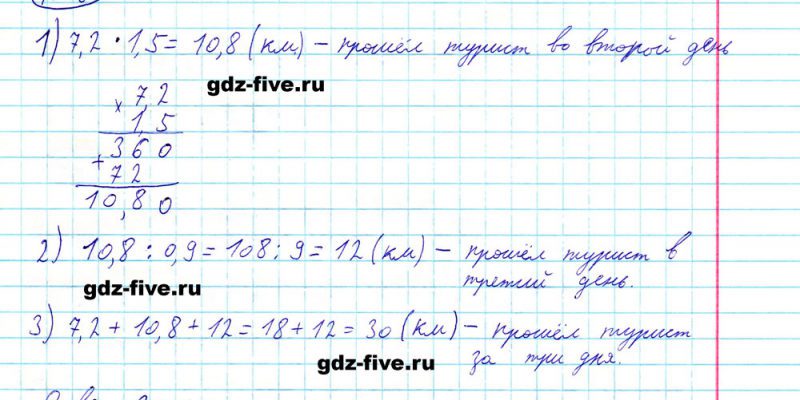 1) 7,2 · 1,5 = 10,8 (км) – прошёл турист во второй день
gdz-five.ru
× 7,2
1,5
360
+ 72
10,80
2) 10,8 : 0,9 = 108 : 9 = 12 (км) – прошёл турист в
третий день.
gdz-five.ru
3) 7,2 + 10,8 + 12 = 18 + 12 = 30 (км) – прошёл турист
за три дня.
gdz-five.ru